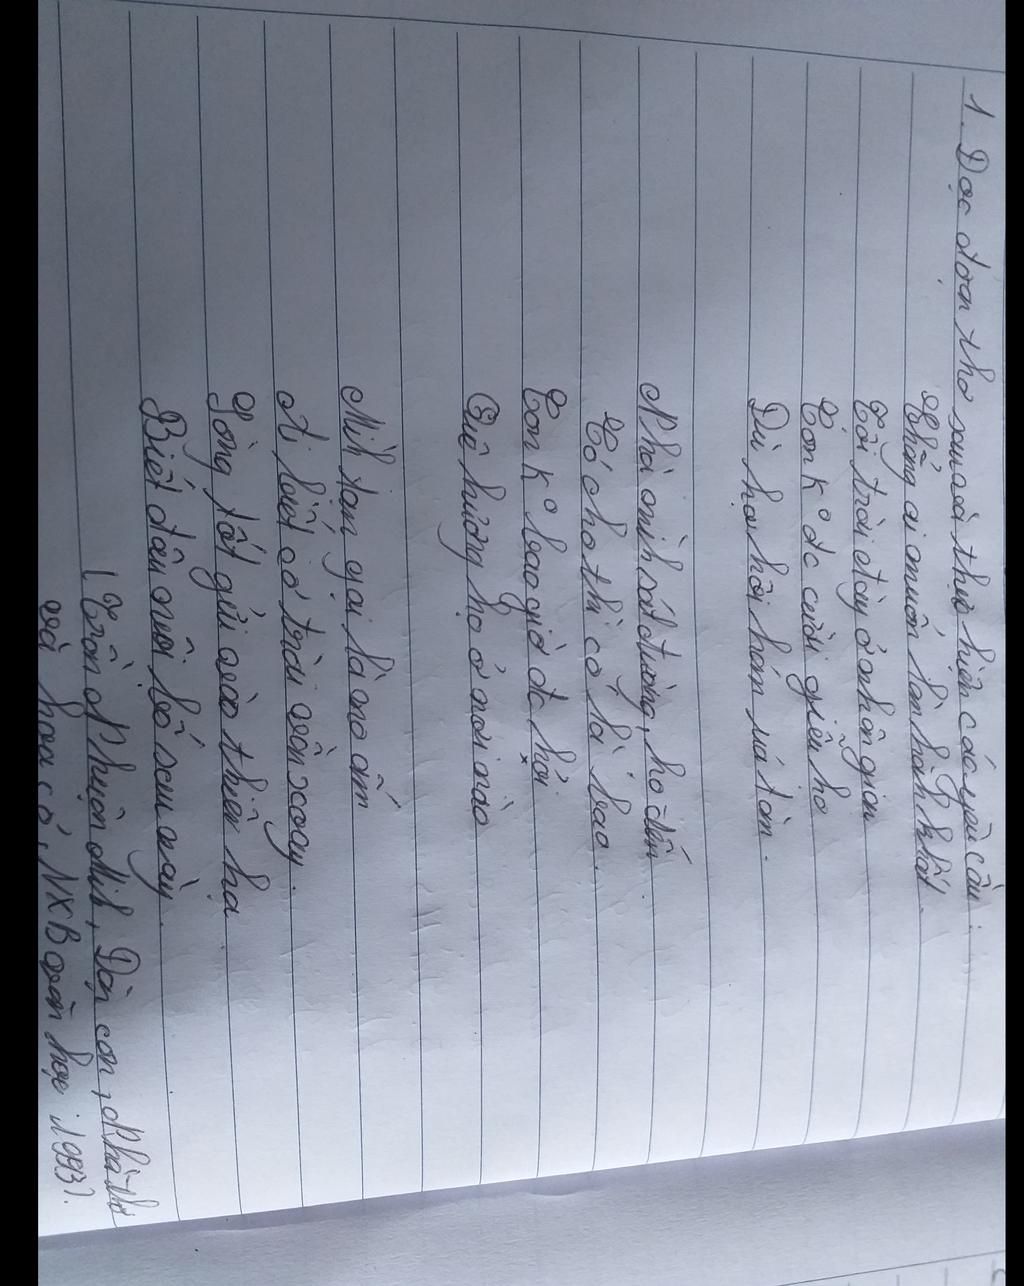 1. Đọc đoạn thơ sau và thực hiện các yêu cầu:
Chẳng ai muốn làm hành khất
Tội trời đày ở nhân gian
Con ko đc cười giễu họ
Dù họ hôi hám úa tàn.
Nhà mình sát đường, họ đến
Có cho thì có là bao
Con ko bao giờ đc hỏi
Quê hương họ ở nơi nào
Mình tạm gọi là no ấm
Ai biết cơ trời vần xoay
Lòng tốt gửi vào thiên hạ
Biết đâu nuôi bố sau này.
(Trần Nhuận Minh, Dặn con, Nhà thơ
và hoa cỏ, NXB văn học 1993).